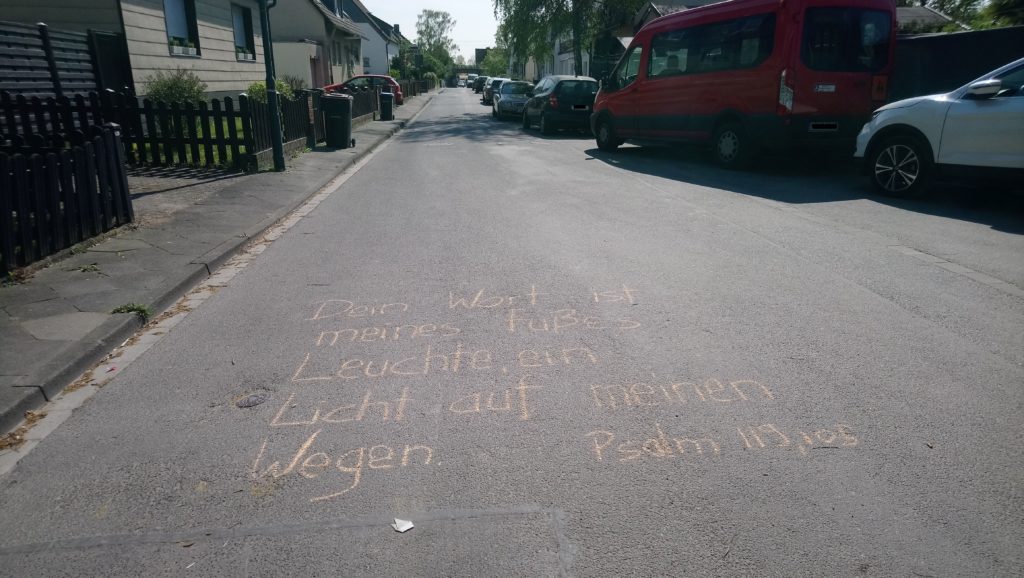 Dein Wort ist
meines Fußes
Leuchte, ein
Licht auf meinen
Wegen.
Psalm 119,105